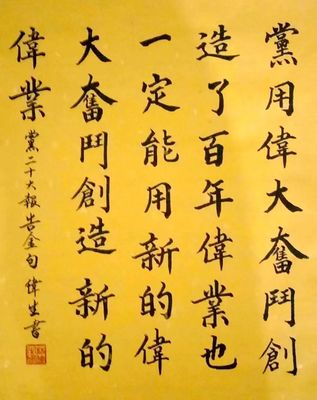 黨用偉大奮鬥創
造了百年偉業也
一定能用新的偉
大奮鬥創造新的
偉業
黨二十大報告金句 偉生書